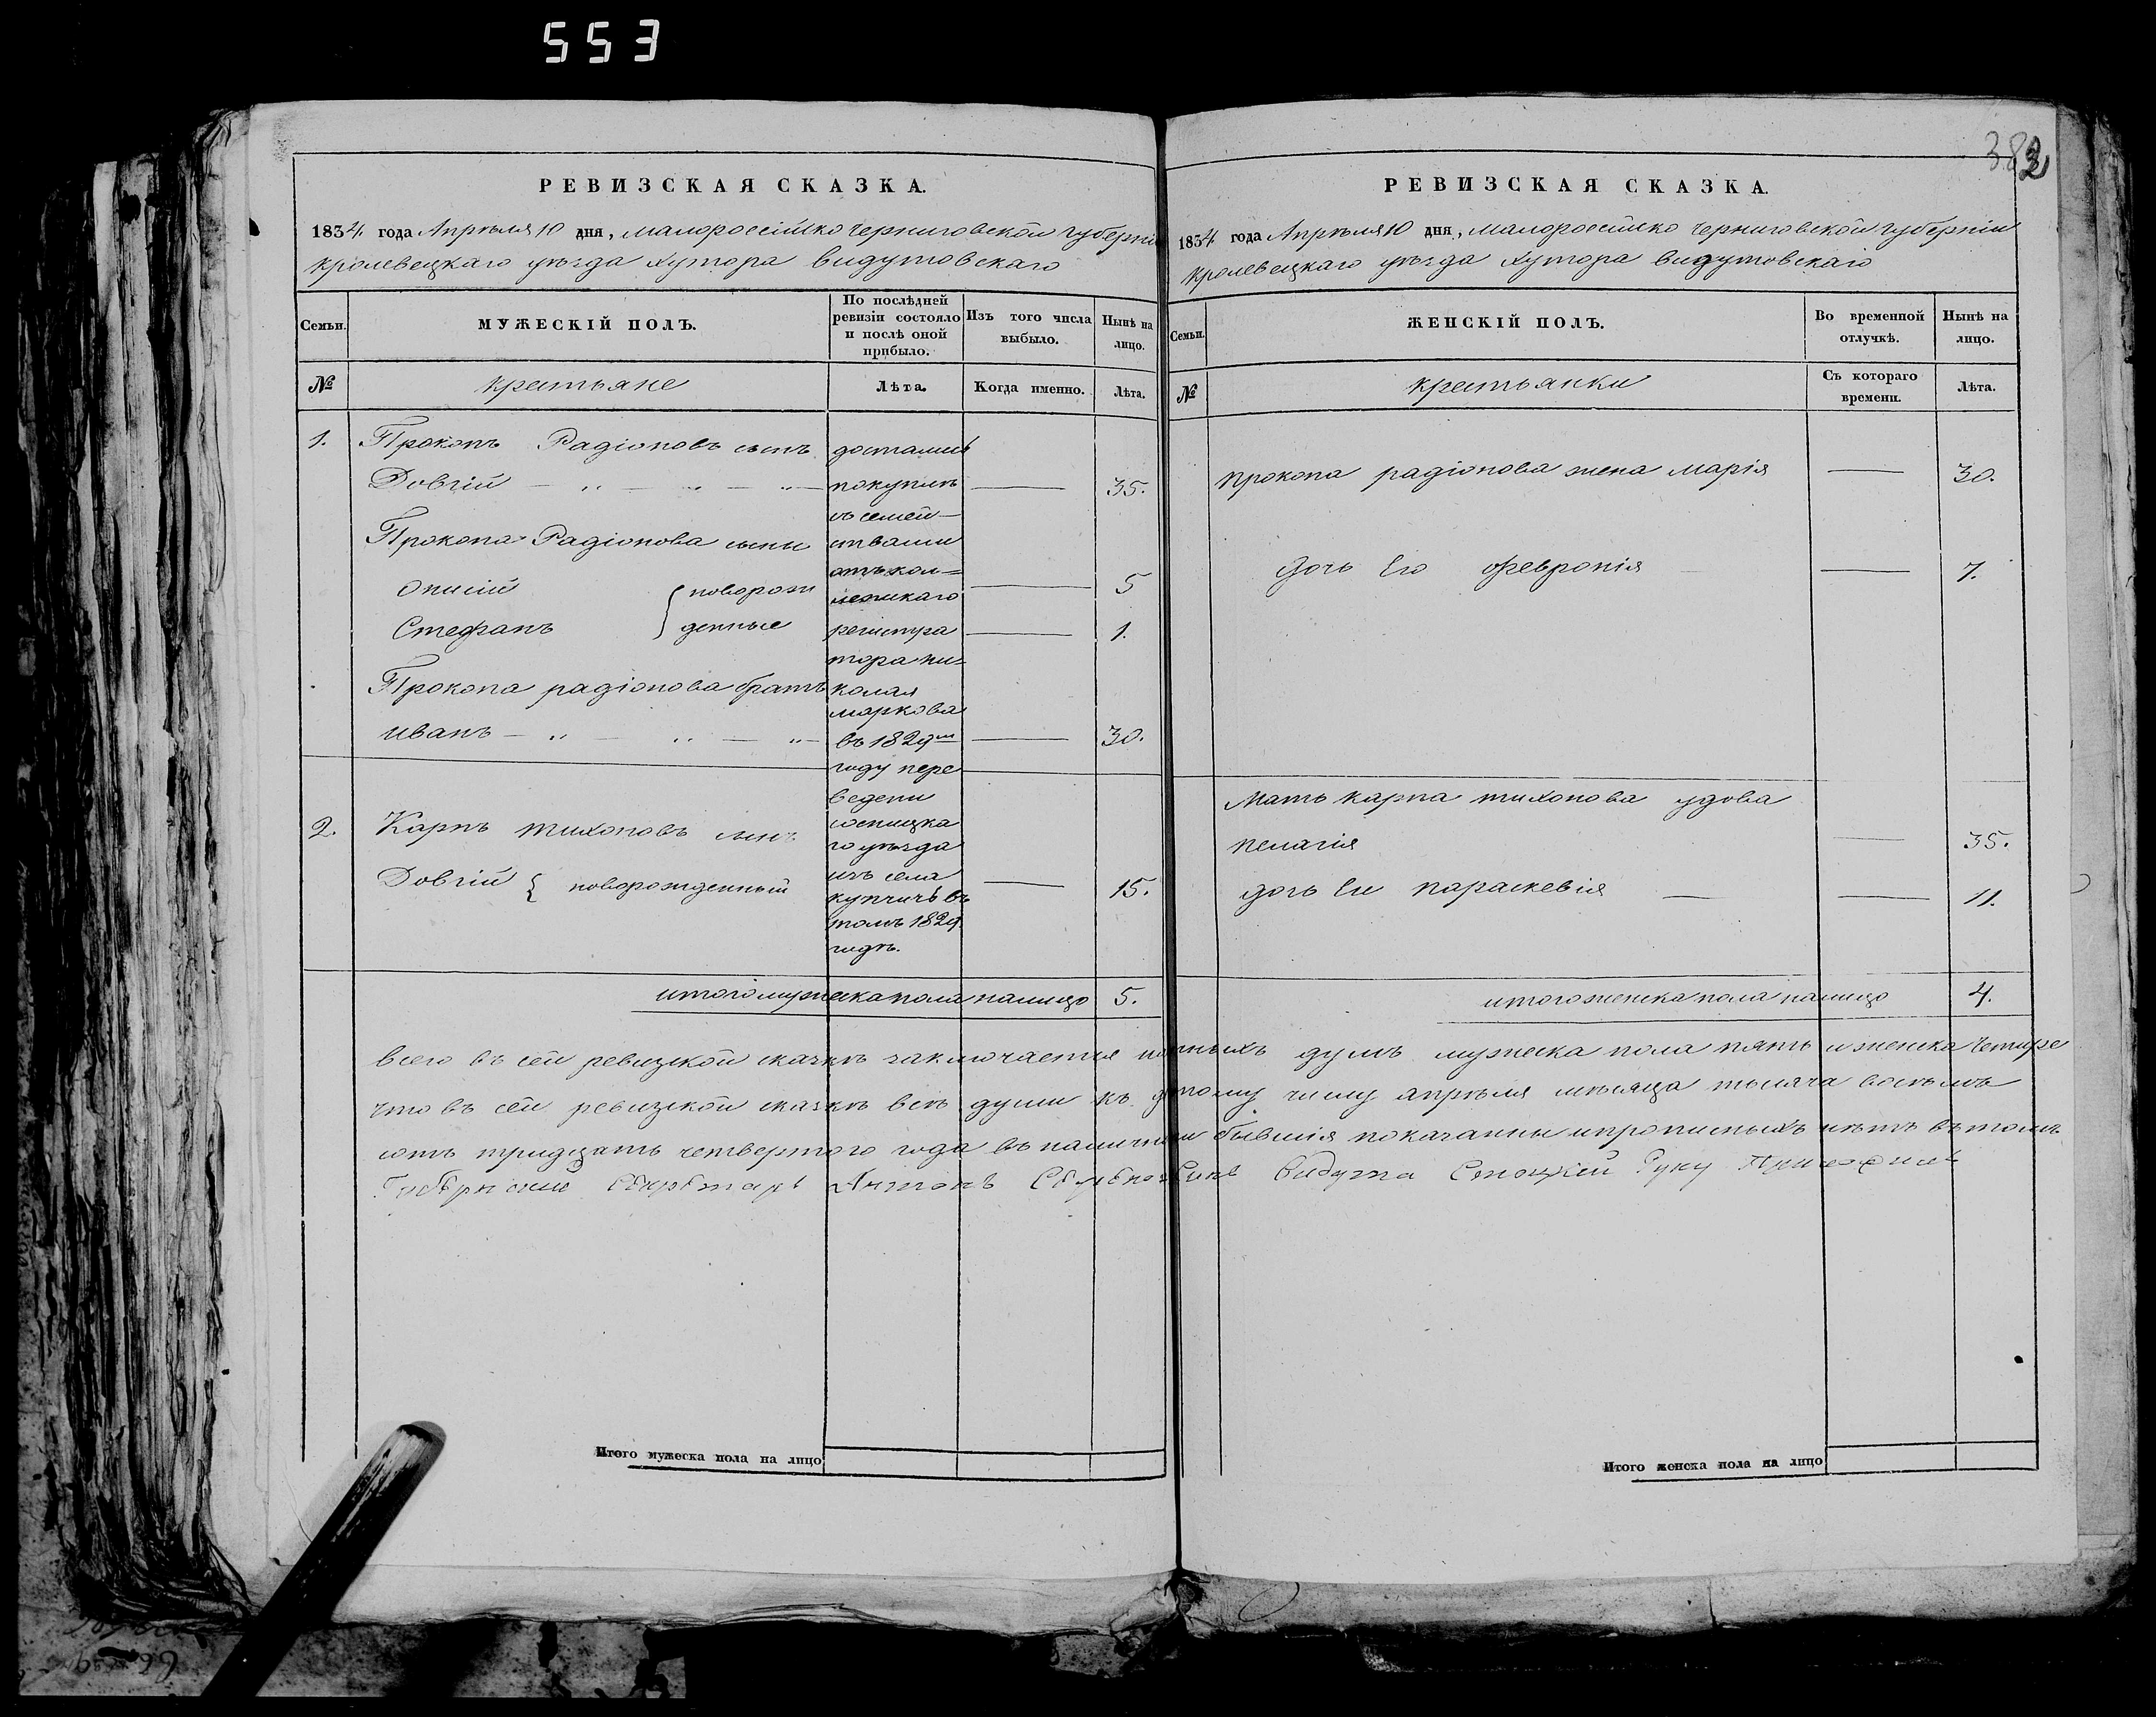 553
382
РЕВИЗСКАЯ СКАЗКА.
1834. года Апрѣля 10 дня, малороссійско Черниговской губерніи
кролевецкаго уѣзда хутора видутовскаго
Семьи.
МУЖЕСКІЙ ПОЛЪ.
По послѣдней ревизіи состояло и послѣ оной прибыло.
Изъ того числа выбыло.
Нынѣ на лицо.
№
крестьяне
Лѣта.
Когда именно.
Лѣта.
1. Прокопъ Радіоновъ сынъ
Довгій — „ — „ — „ — 35.
Прокопа Радіонова сыны
Описій { новорож 5
Стефанъ денные 1.
Прокопа радіонова братъ
иванъ — „ — „ — „ — 30.
2. Карпъ тихоновъ сынъ
Довгій { новорожденный 15.
достались
покупкою
съ семей—
ствами
отъ кол=
лежскаго
регистра
тора ни=
колая
маркова
въ 1829м
году пере
ведени
сосницка
го уѣзда
изъ села
купчичъ въ
томъ 1829
годѣ.
итого мужеска пола налицо 5.
РЕВИЗСКАЯ СКАЗКА.
1834. года Апрѣля 10 дня, малоросійско Черниговской губерніи
кролевецкаго уѣзда хутора видутовскаго
Семьи.
ЖЕНСКІЙ ПОЛЪ.
Во временной отлучкѣ.
Нынѣ на лицо.
№
крестьянки
Съ котораго времени.
Лѣта.
прокопа радіонова жена марія — 30.
дочь его февронія — 7.
мать карпа тихонова удова
пелагія — 35.
дочь ея параскевія — 11.
итого женска пола налицо 4.
всего въ сей ревизской сказкѣ заключается душъ мужеска пола пять и женска четыре
что въ сей ревизской сказкѣ всѣ души къ числу апрѣля мѣсяца тысяча восемъ
сотъ тридцать четвертого года въ наличіи бывшія показанны и прописныхъ нѣтъ въ томъ
Губернскій Секретарь Антонъ Сынъ Видута Стоцкій Руку Приложилъ
Итого мужеска пола на лицо
Итого женска пола на лицо